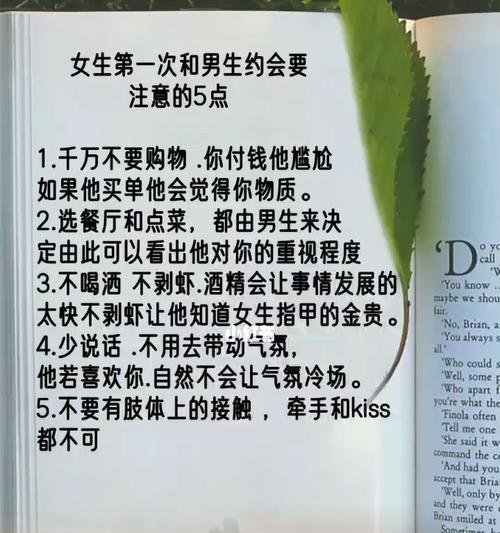 女生第一次和男生约会要
注意的5点
1.千万不要购物 .你付钱他尴尬
如果他买单他会觉得你物质。
2.选餐厅和点菜，都由男生来决
定由此可以看出他对你的重视程度
3.不喝洒 不剥虾.酒精会让事情发展的
太快不剥虾让他知道女生指甲的金贵。
小红书
4.少说话 .不用去带动气氛，
他若喜欢你.自然不会让气氛冷场。
5.不要有肢体上的接触 ，牵手和kiss
都不可
'Do yo
call
'W
'You know ..
maybe we shou
fair.
'No, Brian, an
'You always s
all.'
'Who could s
'Well, some p
'Who apart f
you're what the
'Finola often
'Tell me one
'She said it w
command the ce
'And had you
accept that Bria
'Well, only by
and they were o
Brian smiled at
Sometimes b